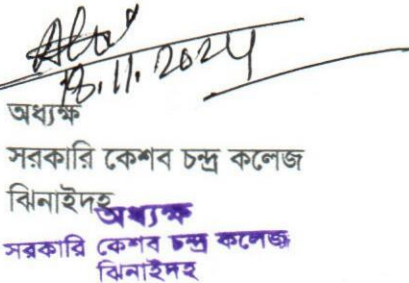 18.11.2024
অধ্যক্ষ
সরকারি কেশব চন্দ্র কলেজ
ঝিনাইদহ
অধ্যক্ষ
সরকারি কেশব চন্দ্র কলেজ
ঝিনাইদহ